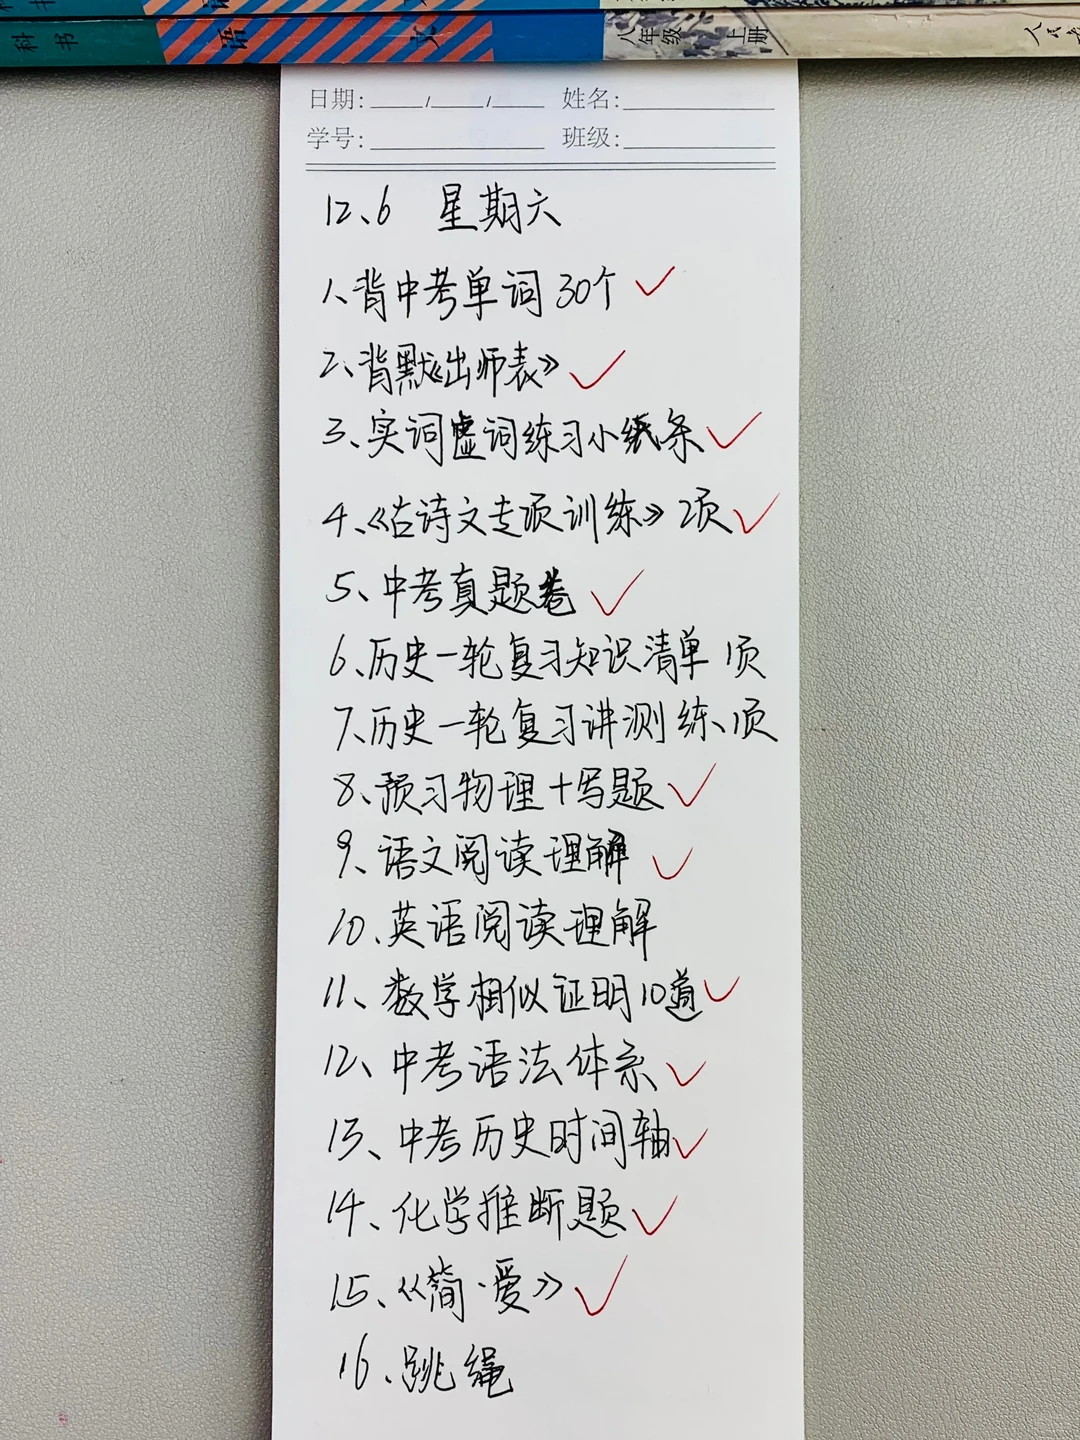 科书 语 文 八年级 上册 人民
日期:____/____/____ 姓名:__________
学号:__________ 班级:__________
12、6 星期六
1、背中考单词30个 ✓
2、背默《出师表》 ✓
3、实词虚词练习小纸条 ✓
4、《古诗文专项训练》2页 ✓
5、中考真题卷 ✓
6、历史一轮复习知识清单 1页
7、历史一轮复习讲测练、1页
8、预习物理+写题 ✓
9、语文阅读理解 ✓
10、英语阅读理解
11、数学相似证明10道 ✓
12、中考语法体系 ✓
13、中考历史时间轴 ✓
14、化学推断题 ✓
15、《简·爱》 ✓
16、跳绳